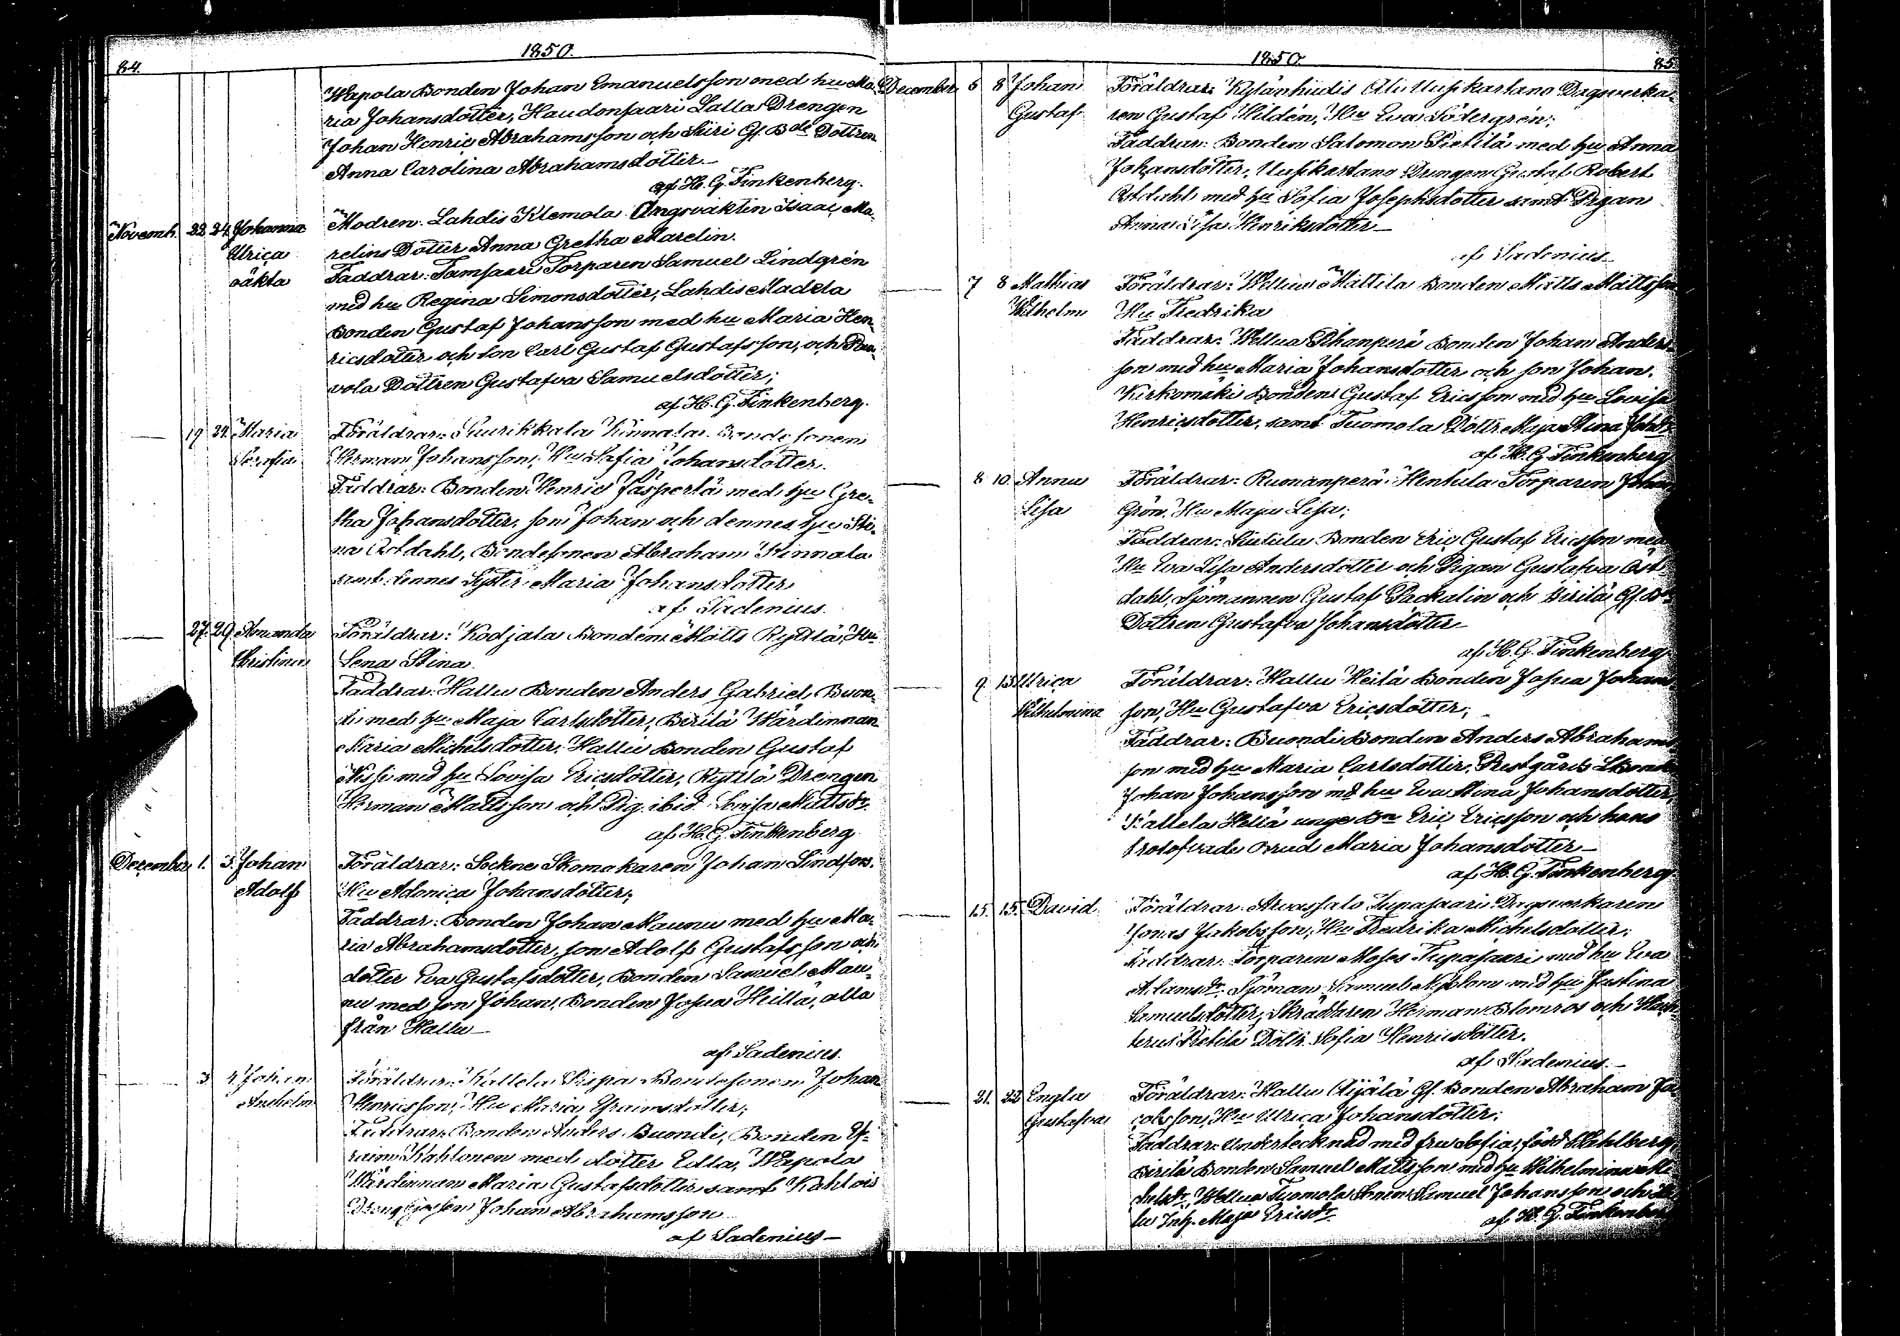 84.
1850.
Wapola Bonden Johan Emanuelsson med hu Ma-
ria Johansdotter, Haudonsaari Lalla Drengen
Johan Henric Abrahamsson och Siiri Gl. Bde Dottren
Anna Carolina Abrahamsdotter
af H. G. Finkenberg.
Novemb. 22 24 Johanna Modren. Lahdis Klemola Ångsvaktin Isaac Ma-
Ulrica relins Dotter Anna Gretha Marelin.
oäkta Faddrar: Tamsaari Torparen Samuel Lindgrén
med hu Regina Simonsdotter, Lahdis Madela
Bonden Gustaf Johansson med hu Maria Hen-
ricsdotter och son Carl Gustaf Gustafsson, och
vola Dottren Gustafva Samuelsdotter;
af H. G. Finkenberg.
19 24 Maria Föräldrar: Suurikkala Kinnala Bonde sonen
Sofia Herman Johansson, Hu Sofia Johansdotter.
Faddrar: Bonden Henric Jäspertä med hu Gre-
tha Johansdotter, son Johan och dennes hu Sti-
na Östdahl, Bondesonen Abraham Kinnala
samt dennes Syster Maria Johansdotter
af Sadenius.
27 29 Amanda Föräldrar: Kodjala Bonden Matts Rytilä, Hu
Christina Lena Stina.
Faddrar: Hallu Bonden Anders Gabriel Buon-
di med hu Maja Carlsdotter, Birilä Wärdinnan
Maria Michelsdotter, Hallu Bonden Gustaf
Nissi med hu Lovisa Ericsdotter, Rytilä Drengen
Herman Mattsson och Pig. ibid. Lovisa Mattsdr.
af H. G. Finkenberg
December 1. 3. Johan Föräldrar: Sockne Skomakaren Johan Lindfors.
Adolf Hu Adonica Johansdotter;
Faddrar: Bonden Johan Maunu med hu Ma-
ria Abrahamsdotter, son Adolf Gustafsson och
dotter Eva Gustafsdotter, Bonden Samuel Mau-
nu med son Johan, Bonden Josua Heillä, alla
från Hallu
af Sadenius.
3 4 Johan Föräldrar: Kallela Sispa Bondesonen Johan
Anshelm Henricsson, Hu Maria Efraimsdotter;
Faddrar: Bonden Anders Buondi, Bonden Ef-
raim Kahlonen med dotter Edla, Wapola
Wärdinnan Maria Gustafsdotter samt Kahlois
Johan Abrahamsson
af Sadenius
1850.
85
December 6 8 Johan Föräldrar: Kylänhiidis Ali Uusikartano Dagsverka-
Gustaf ren Gustaf Hildén, Hu Eva Södergrén;
Faddrar: Bonden Salomon Pietilä med hu Anna
Johansdotter, Uusikartano Drengen Gustaf Robert
Östdahl med hu Sofia Josephsdotter samt Pigan
Anna Lisa Henriksdotter
af Sadenius
7 8 Mathias Föräldrar: Wellua Mattila Bonden Matts Mattsson
Wilhelm Hu Fredrika
Faddrar: Wellua Rihanperä Bonden Johan Anders-
son med hu Maria Johansdotter och son Johan.
Kirkomäki Bonden Gustaf Ericsson med hu Lovisa
Henricsdotter, samt Tuomola Dottr. Maja Stina Johdr.
af H. G. Finkenberg
8 10 Anna Föräldrar: Ruonanperä Hentula Torparen Johan
Lisa Grön, Hu Maja Lisa;
Faddrar: Sintula Bonden Eric Gustaf Ericsson med
Hu Eva Lisa Andersdotter och Pigan Gustafva Öst-
dahl, Sjömannen Gustaf Packalin och Birilä Gl. Bde
Dottren Gustafva Johansdotter
af H. G. Finkenberg
9 13 Ulrica Föräldrar: Hallu Heilä Bonden Josua Johans-
Wilhelmina son, Hu Gustafva Ericsdotter;
Faddrar: Buondi Bonden Anders Abrahams-
son med hu Maria Carlsdotter, Prestgårds
Johan Johansson md hu Eva Stina Johansdotter,
Kallela Hellä unge Bn Eric Ericsson och hans
trolofvade Brud Maria Johansdotter
af H. G. Finkenberg
15. 15. David Föräldrar: Arvassalo Tupasaari Dagsverkaren
Jonas Jakobsson, Hu Fredrika Michelsdotter;
Faddrar: Torparen Moses Tupasaari med hu Eva
Adamsdr. Sjöman Samuel Nyblom med hu Justina
Samuelsdotter, Skräddaren Herman Blomros och
Pietilä Dottr. Sofia Henricsdotter.
af Sadenius
21. 22 Engla Föräldrar: Hallu Äijälä Gl. Bonden Abraham Ja-
Gustafva cobsson, Hu Ulrica Johansdotter;
Faddrar: Undertecknad med fru Sofia, född Wahlberg,
Birilä Bonden Samuel Mattsson med hu Wilhelmina
Wellua Tuomola Samuel Johansson och
Maja Ericsdr.
af H. G. Finkenberg